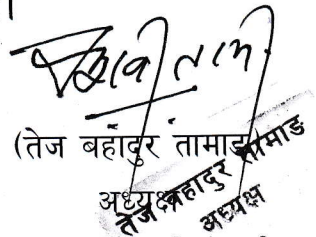 (तेज बहादुर तामाङ)
अध्यक्ष
तेज बहादुर तामाङ
अध्यक्ष